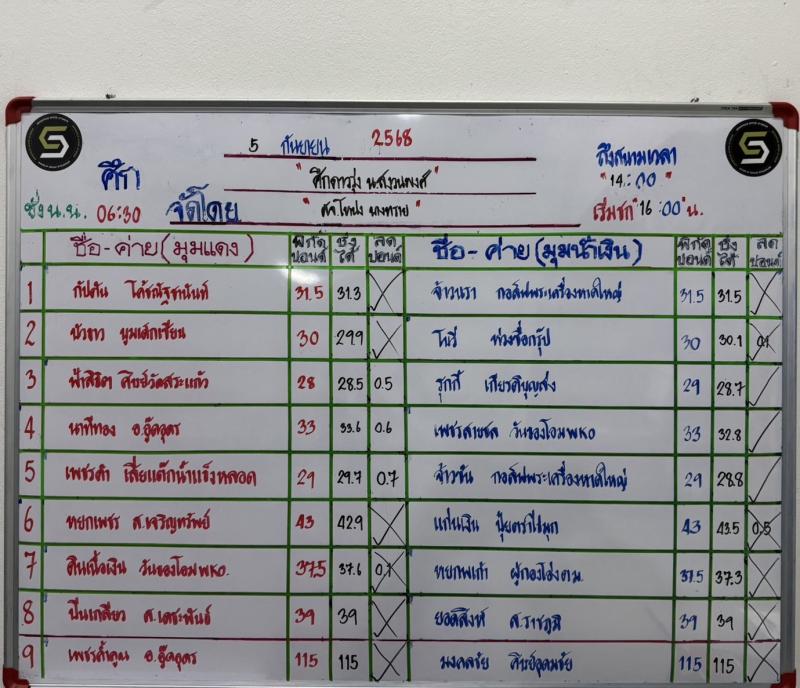 5 กันยายน 2568
ศึก1 "ศึกดาวรุ่ง ส.สงวนพงศ์" ถึงสนามเวลา
"14:00"
ชั่ง น.น. 06:30 จัดโดย เริ่มชก "16:00 น.
ชื่อ-ค่าย (มุมแดง) พิกัด ปอนด์ ชั่ง ได้ ลด ปอนด์ ชื่อ-ค่าย (มุมน้ำเงิน) พิกัด ปอนด์ ชั่ง ได้ ลด ปอนด์
1 กัปตัน โค้ชณัฐชานันท์ 31.5 31.3 จ้าวนรา กอล์ฟพระเครื่องหาดใหญ่ 31.5 31.5
2 บัวขาว หนุมเด็กเซียน 30 29.9 โทรี พ่วงชื่อกรุ๊ป 30 30.1 0.1
3 ฟ้าลิขิต ศิษย์วัดสระแก้ว 28 28.5 0.5 รุกกี้ เกียรติบุญส่ง 29 28.7
4 นาทีทอง อ.อู๊ดอุดร 33 33.6 0.6 เพชรสายชล วันชองโอมWKO 33 32.8
5 เพชรดำ เสี่ยแต๊กน้ำแข็งหลอด 29 29.7 0.7 จ้าวซัน กอล์ฟพระเครื่องหาดใหญ่ 29 28.8
6 หยกเพชร ส.เจริญทรัพย์ 43 42.9 แก่นเงิน ปุ๋ยตราไข่มุก 43 43.5 0.5
7 ดินเนื้อเงิน วันชองโอมWKO. 37.5 37.6 0.1 หยกเก้า ผู้กองโอ๋งตม. 37.5 37.3
8 ปืนเกลียว ส.เดชะพันธ์ 39 39 ยอดสิงห์ ส.ราชภูมิ 39 39
9 เพชรค้ำคูณ อ.อู๊ดอุดร 115 115 มงคลชัย ศิษย์อุดมชัย 115 115